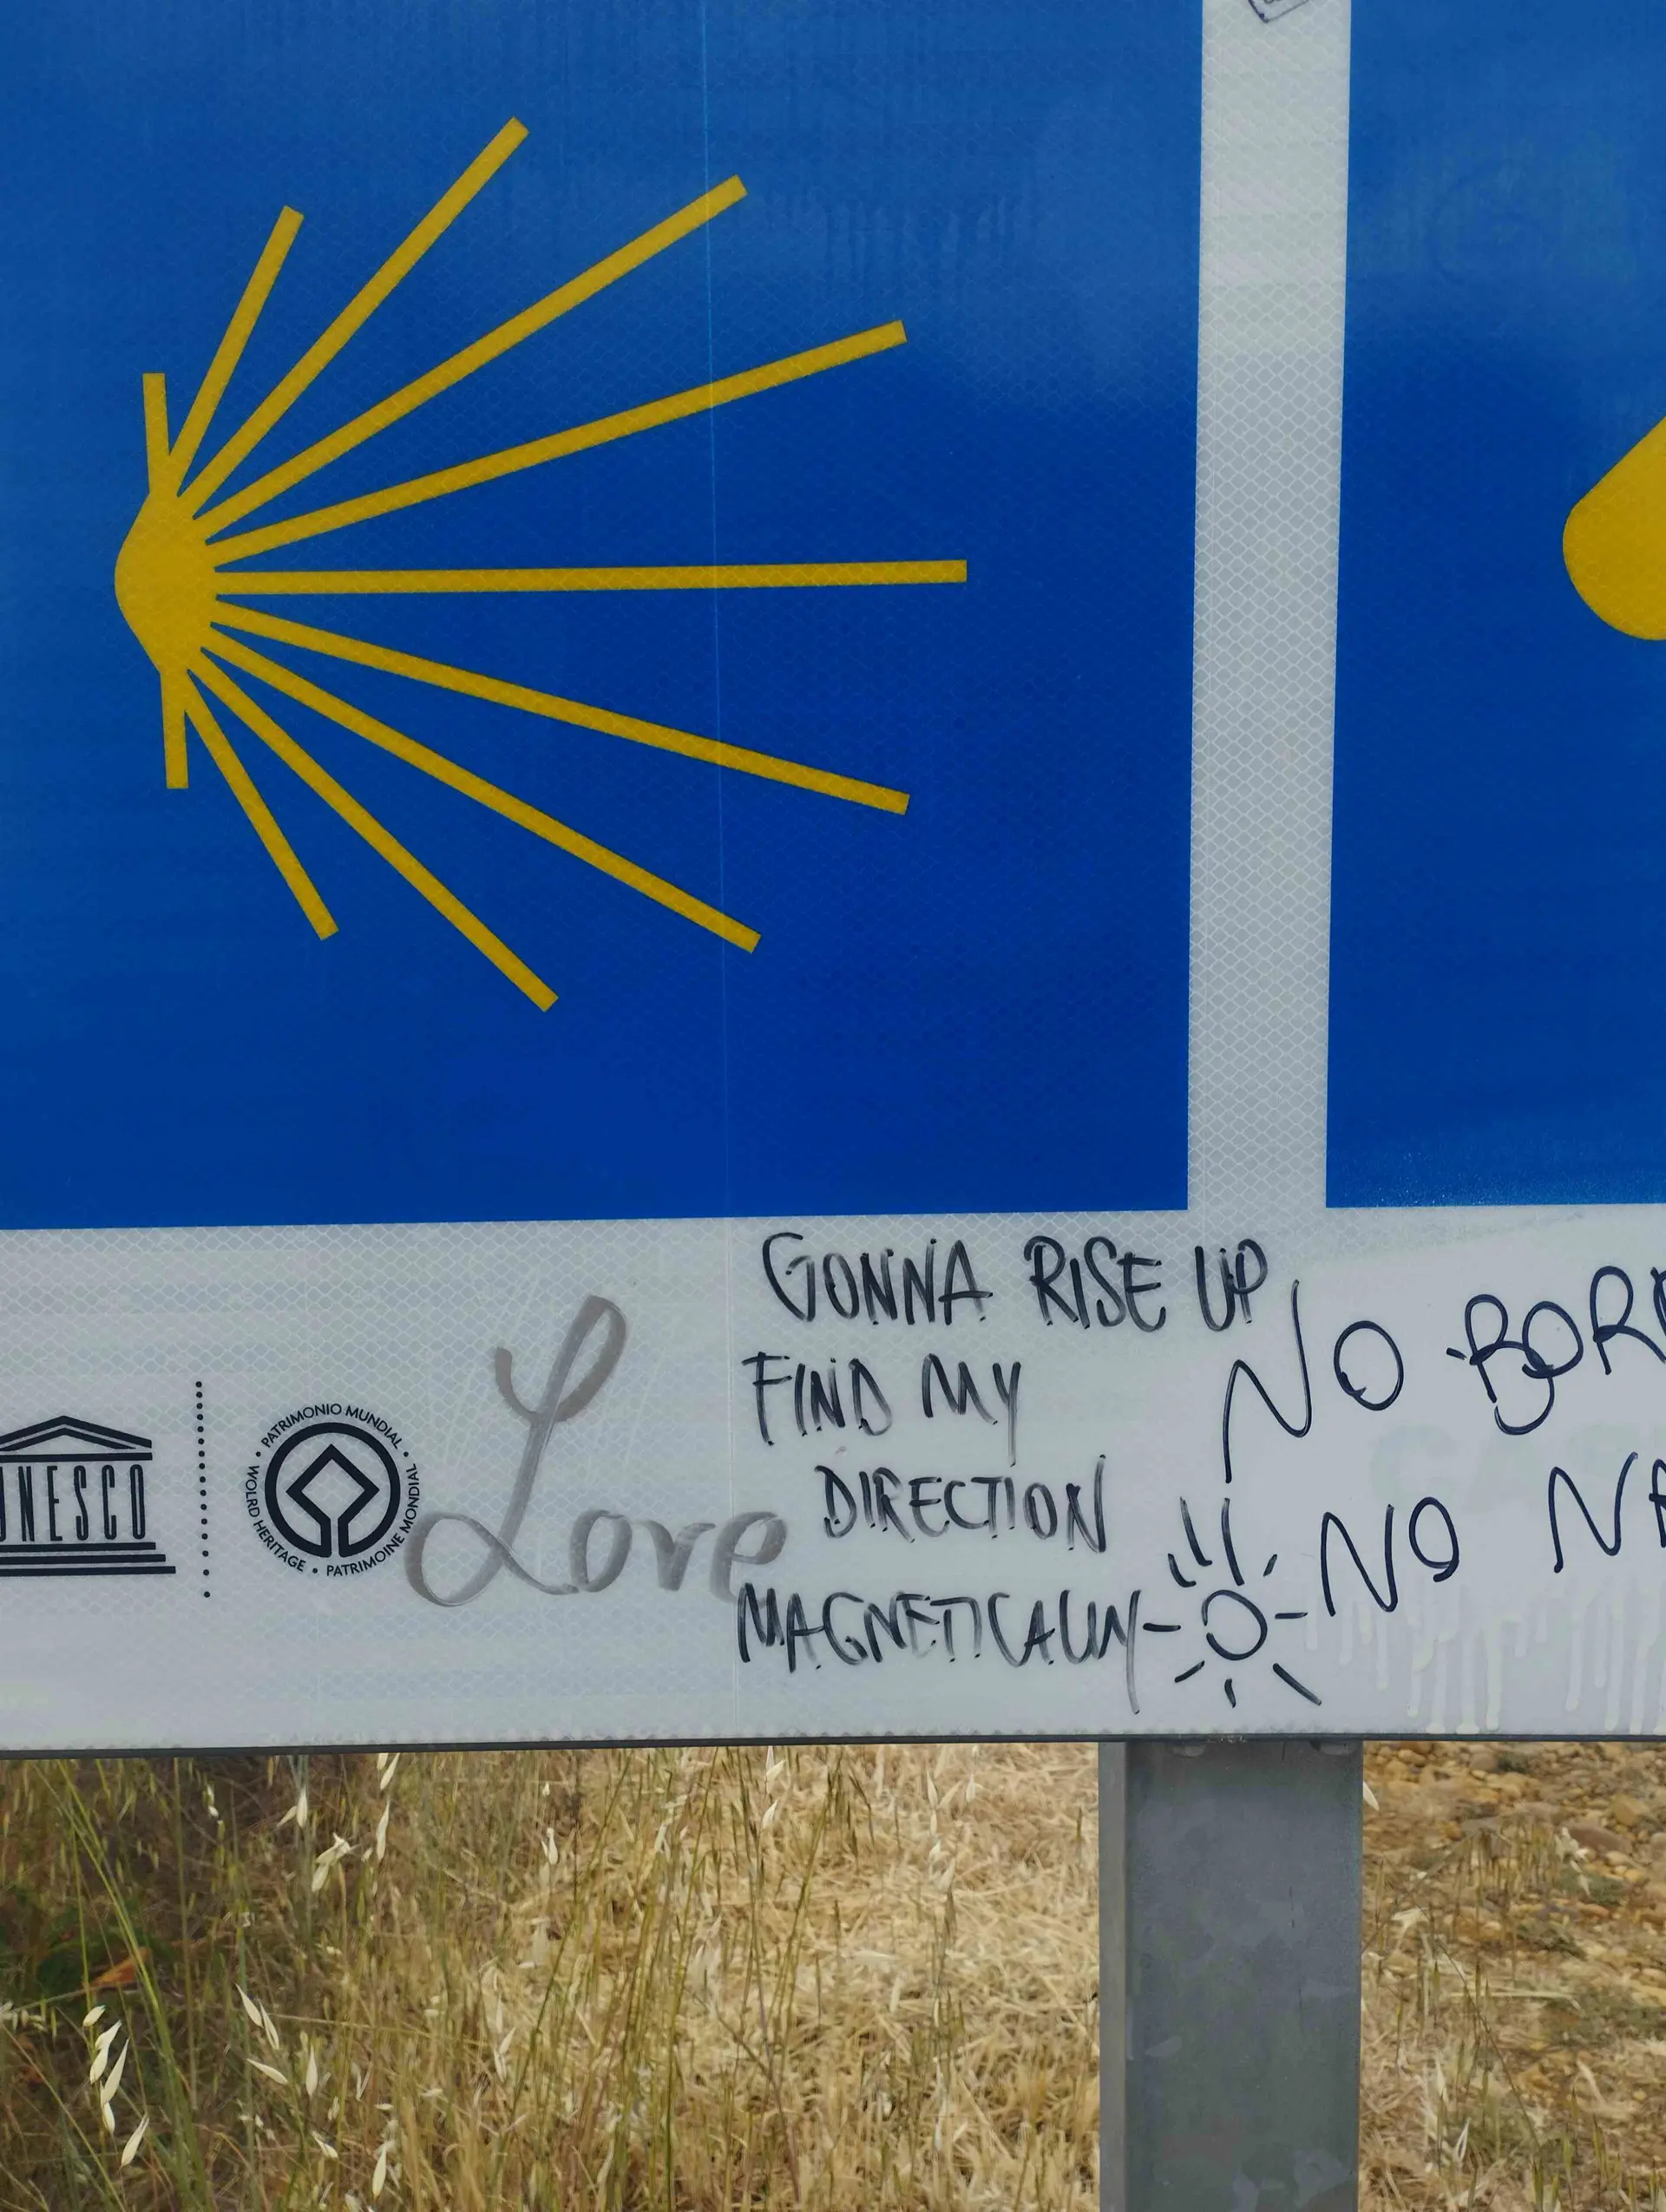 GONNA RISE UP
FIND MY
DIRECTION
MAGNETICALLY
Love
NO BORD
NO NA
UNESCO
PATRIMONIO MUNDIAL • WOLRD HERITAGE • PATRIMOINE MONDIAL •